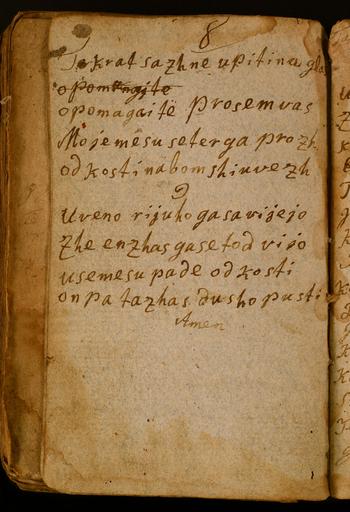 8
Tekrat sazhne upitinagla
opomagajte
opomagaite prosem vas
Moje mesu se terga prozh
od kosti nabom shiu vezh
9
Uveno rijuho ga savijejo
Zhe en zhas ga se tod vijo
use mesu pade od kosti
on pa ta zhas dusho pusti
Amen